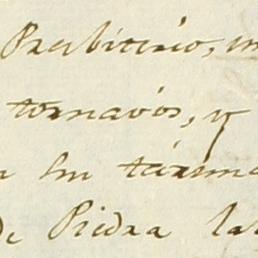 Presbiterio, en
tornavós, y
en su término
de Piedra la